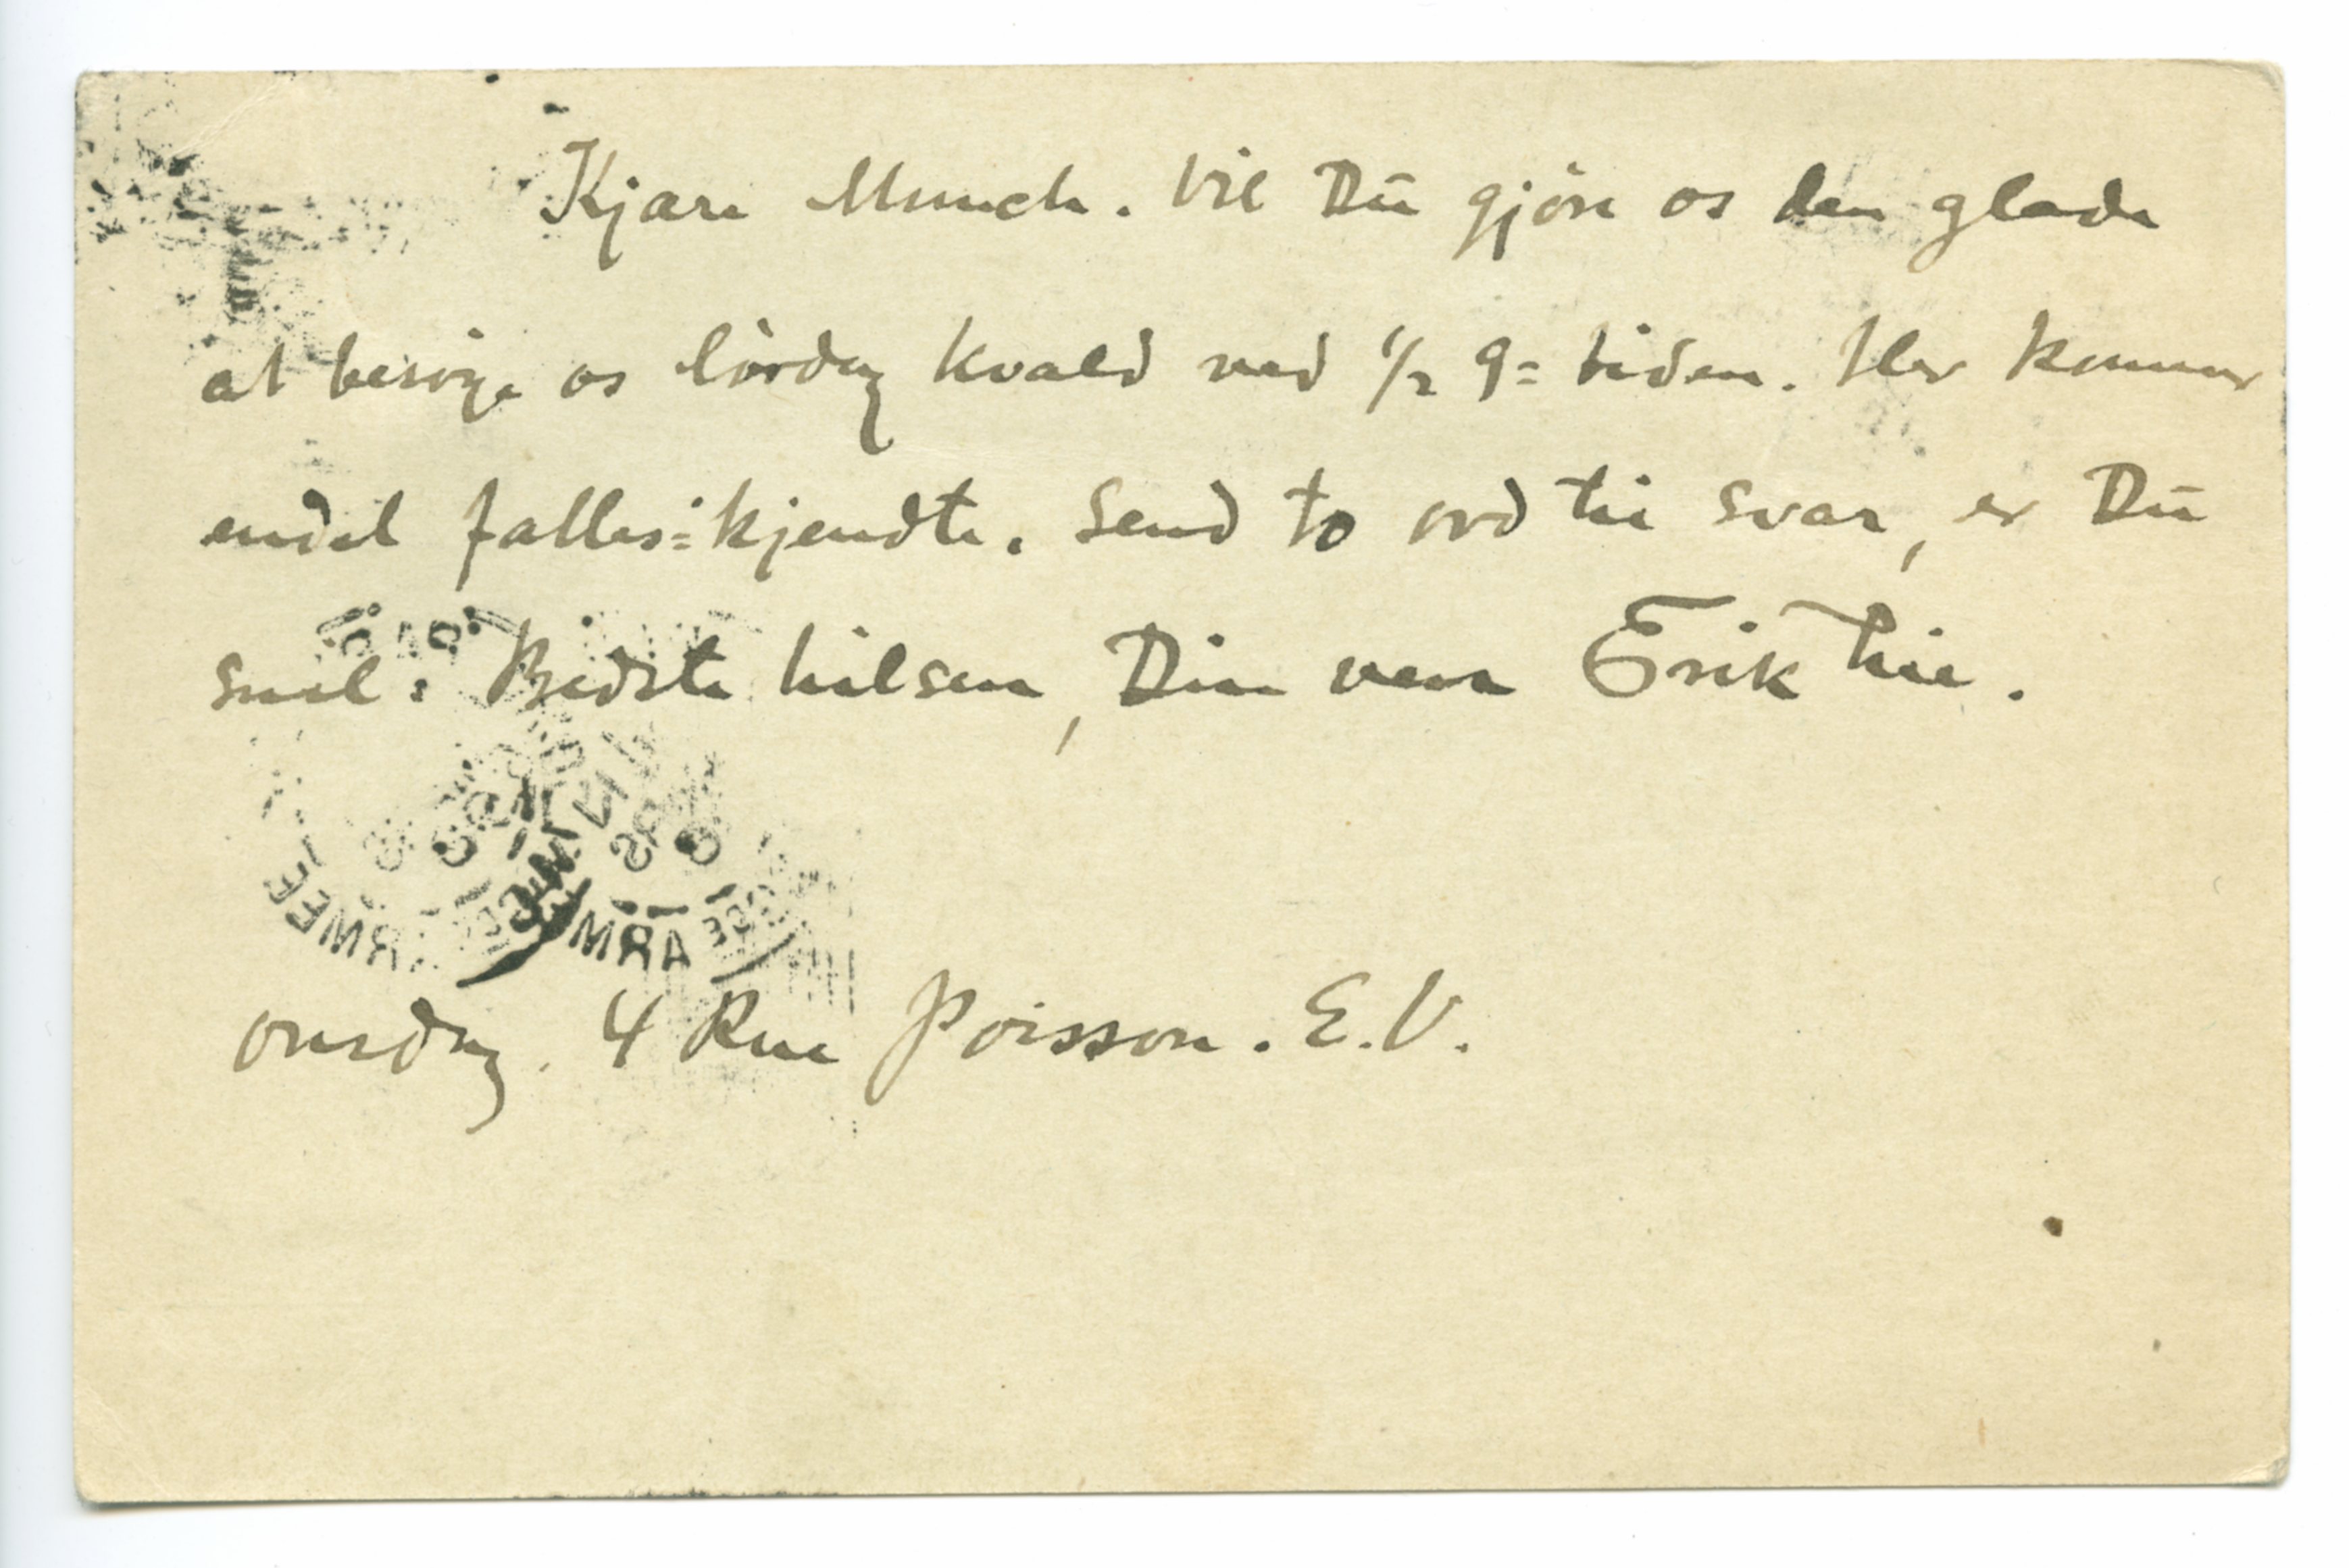 Kjære Munch. Vil Du gjöre os den glæde
at besöge os lördag kvæld ved 1/2 9=tiden. Her kommer
endel fælles=kjendte. Send to ord til svar, er Du
snil. Bedste hilsen, Din ven Erik Lie.
onsdag. 4 Rue Poisson. E.V.